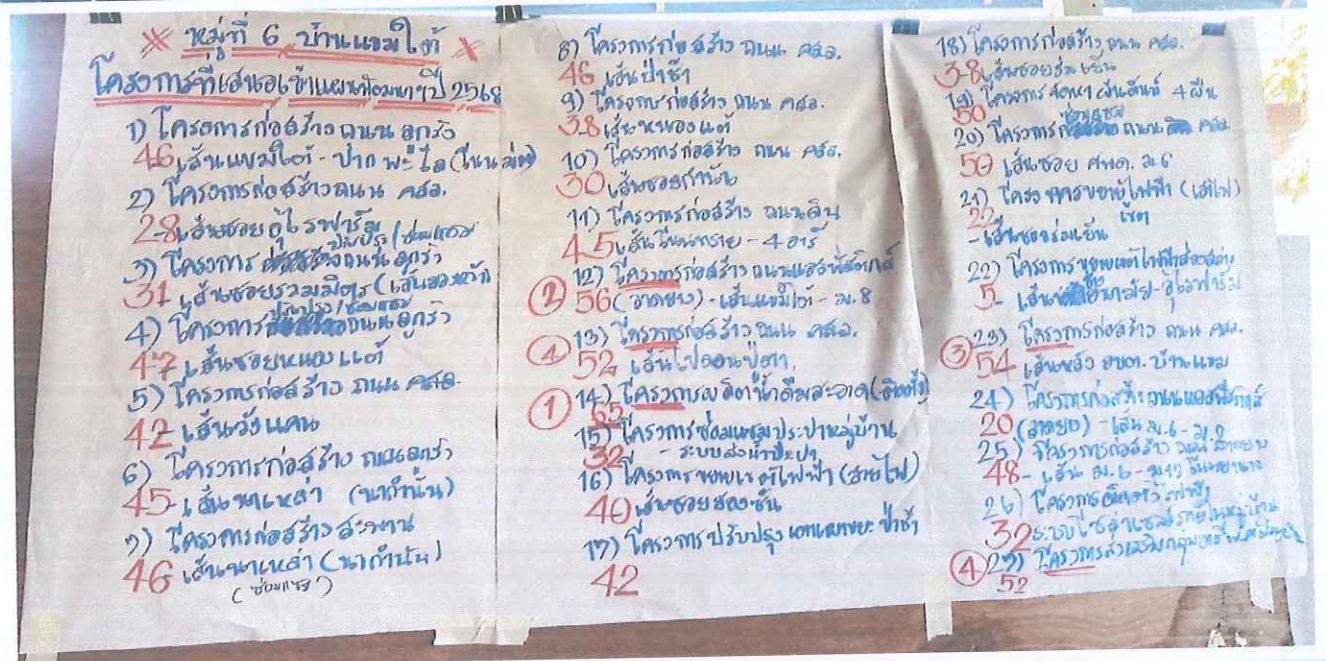 หมู่ที่ 6 บ้านแขมใต้
โครงการที่เสนอเข้าแผนพัฒนาฯปี 2568
1) โครงการก่อสร้าง ถนน ลูกรัง
46 เส้นแขมใต้ - ปาก
2) โครงการก่อสร้างถนน คสล.
28 เส้นซอยอุไรฟาร์ม
3) โครงการ ปรับปรุง/ซ่อมแซม ถนน ลูกรัง
31 เส้นซอยรวมมิตร (เส้น
4) โครงการ ปรับปรุง/ซ่อมแซม ถนน ลูกรัง
47 เส้นซอยหนองแต้
5) โครงการก่อสร้าง ถนน คสล.
42 เส้นวังแคน
6) โครงการก่อสร้าง ถนนลูกรัง
45 - เส้นนาเหล่า (นากำนัน)
7) โครงการก่อสร้าง สะพาน
46 เส้นนาเหล่า (นากำนัน)
(ซ่อมแซม)
8) โครงการก่อสร้าง ถนน คสล.
46 เส้นป่าช้า
9) โครงการก่อสร้าง ถนน คสล.
38 เส้นหนองแต้
10) โครงการก่อสร้าง ถนน คสล.
30 เส้นซอยกำนัน
11) โครงการก่อสร้าง ถนนดิน
45 เส้นโนนทราย - 4 อาร์
② 12) โครงการก่อสร้าง ถนนแอสฟัสติกส์
56 (ลาดยาง) - เส้นแขมใต้ - ม.8
④ 13) โครงการก่อสร้าง ถนน คสล.
52 เส้นไปดอนปู่ตา
① 14) โครงการผลิตน้ำดื่มสะอาด (ติดตั้ง)
65
15) โครงการซ่อมแซมประปาหมู่บ้าน
32 - ระบบส่งน้ำประปา
16) โครงการขยายเขตไฟฟ้า (สายไฟ)
40 เส้นซอยสองชั้น
17) โครงการปรับปรุง เตาเผาขยะ ป่าช้า
42
18) โครงการก่อสร้าง ถนน คสล.
38 เส้นซอยร่มเย็น
19) โครงการ ผืน 4 ผืน
50
20) โครงการ ซ่อมแซม ถนน คสล.
50 เส้นซอย ศพด. ม.6
21) โครงการขยายไฟฟ้า (เสาไฟ)
เขต
22
- เส้นซอยร่มเย็น
22) โครงการขยายเขตไฟฟ้าส่องสว่าง
5 - เส้น - อุไรฟาร์ม
③ 23) โครงการก่อสร้าง ถนน คสล.
54 เส้นหลัง อบต. บ้านแขม
24) โครงการก่อสร้างถนนแอสฟัสติกส์
20 (ลาดยาง) - เส้น ม.6 - ม.9
25) โครงการก่อสร้าง ถนน ลาดยาง
48 - เส้น ม.6 - ม.12
26) โครงการติดตั้งไฟฟ้า
32 ระบบโซล่าเซลล์ภายในหมู่บ้าน
④ 27) โครงการส่งเสริมกลุ่ม
52